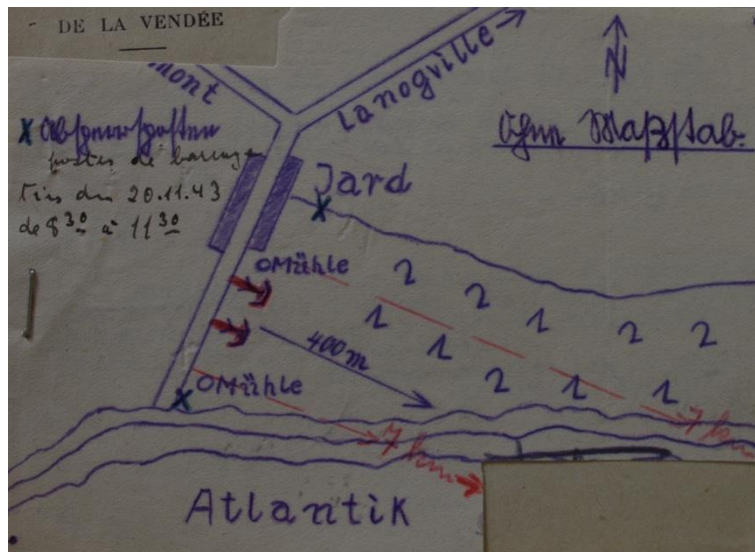 DE LA VENDÉE
mont
Lanogville
N
Ohne Maßstab.
x Absperrposten
postes de barrage
Tirs du 20.11.43
de 8 30 à 11 30
Jard
x
Mühle
2 2 1 2 2
1 1 2 1 1
400m
Mühle
x
7 km
7 km
Atlantik